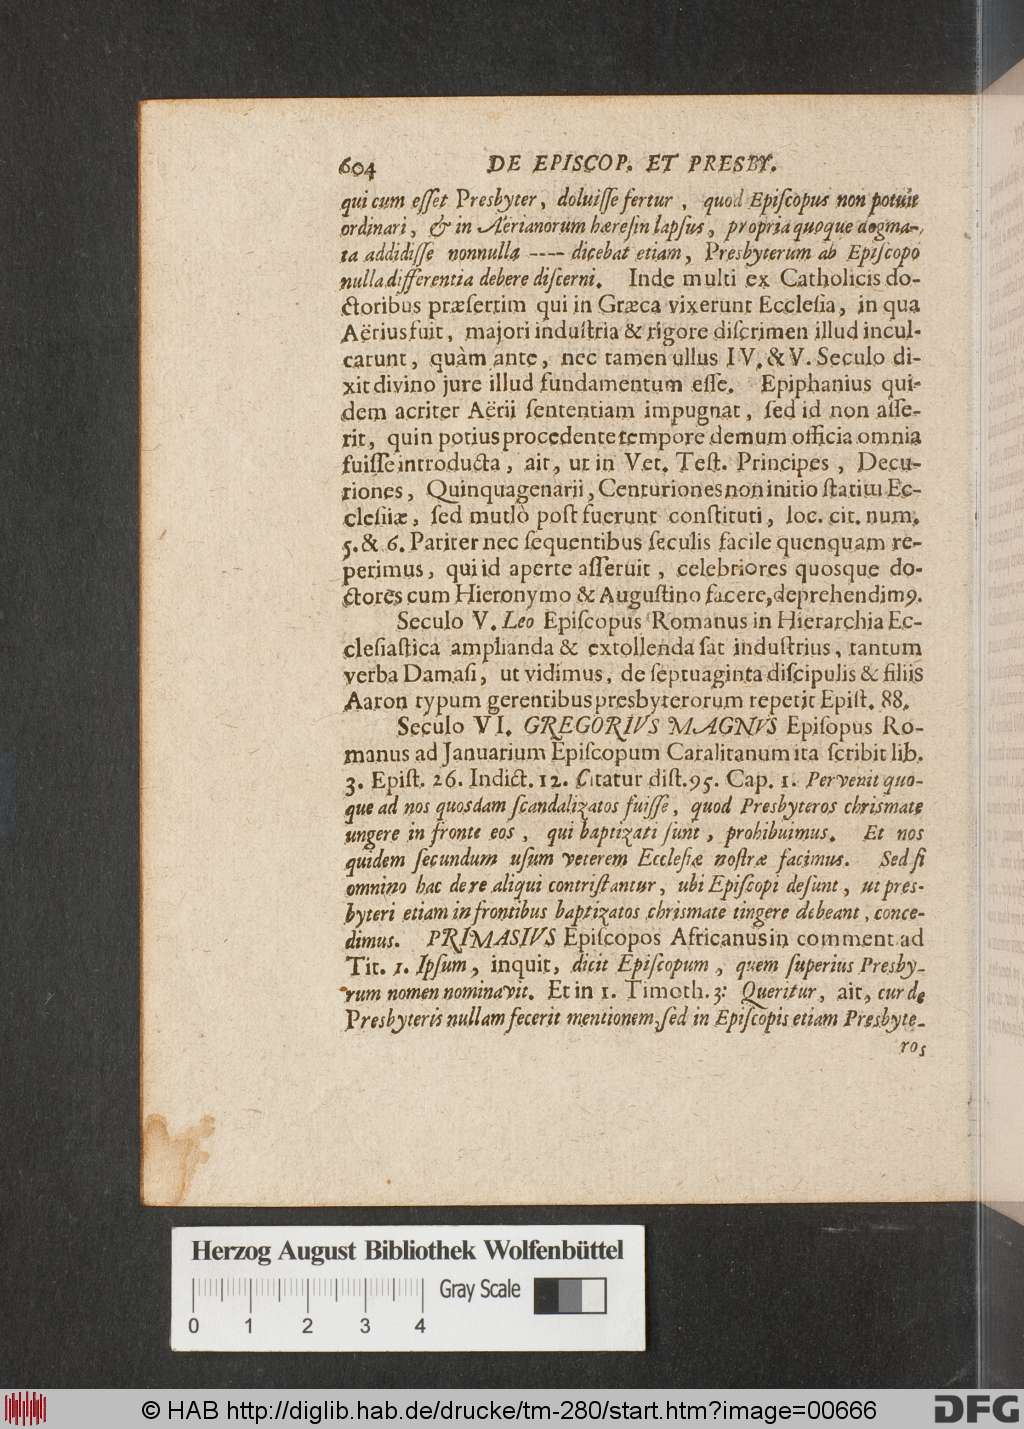 604 DE EPISCOP. ET PRESBY.
qui cum eſſet Presbyter, doluiſſe fertur, quod Epiſcopus non potuit
ordinari, & in Aërianorum hæreſin lapſus, propria quoque dogma-
ta addidiſſe nonnulla ---- dicebat etiam, Presbyterum ab Epiſcopo
nulla differentia debere diſcerni. Inde multi ex Catholicis do-
ctoribus præſertim qui in Græca vixerunt Eccleſia, in qua
Aërius fuit, majori induſtria & rigore diſcrimen illud incul-
carunt, quàm ante, nec tamen ullus IV. & V. Seculo di-
xit divino jure illud fundamentum eſſe. Epiphanius qui-
dem acriter Aërii ſententiam impugnat, ſed id non aſſe-
rit, quin potius procedente tempore demum officia omnia
fuiſſe introducta, ait, ut in Vet. Teſt. Principes, Decu-
riones, Quinquagenarii, Centuriones non initio ſtatim Ec-
cleſiiæ, ſed mutlò poſt fuerunt conſtituti, loc. cit. num.
5. & 6. Pariter nec ſequentibus ſeculis facile quenquam re-
perimus, qui id aperte aſſeruit, celebriores quosque do-
ctores cum Hieronymo & Auguſtino facere, deprehendimꝰ.
Seculo V. Leo Epiſcopus Romanus in Hierarchia Ec-
cleſiaſtica amplianda & extollenda ſat induſtrius, tantum
verba Damaſi, ut vidimus, de ſeptuaginta diſcipulis & filiis
Aaron typum gerentibus presbyterorum repetit Epiſt. 88.
Seculo VI. GREGORIVS MAGNVS Epiſopus Ro-
manus ad Januarium Epiſcopum Caralitanum ita ſcribit lib.
3. Epiſt. 26. Indict. 12. Citatur diſt. 95. Cap. 1. Pervenit quo-
que ad nos quosdam ſcandalizatos fuiſſe, quod Presbyteros chrismate
ungere in fronte eos, qui baptizati ſunt, prohibuimus. Et nos
quidem ſecundum uſum veterem Eccleſiæ noſtræ facimus. Sed ſi
omnino hac de re aliqui contriſtantur, ubi Epiſcopi deſunt, ut pres-
byteri etiam in frontibus baptizatos chrismate tingere debeant, conce-
dimus. PRIMASIVS Epiſcopos Africanus in comment ad
Tit. 1. Ipſum, inquit, dicit Epiſcopum, quem ſuperius Presby-
rum nomen nominavit. Et in 1. Timoth. 3: Queritur, ait, cur de
Presbyteris nullam fecerit mentionem, ſed in Epiſcopis etiam Presbyte-
ros
Herzog August Bibliothek Wolfenbüttel
Gray Scale
0 1 2 3 4
© HAB http://diglib.hab.de/drucke/tm-280/start.htm?image=00666
DFG